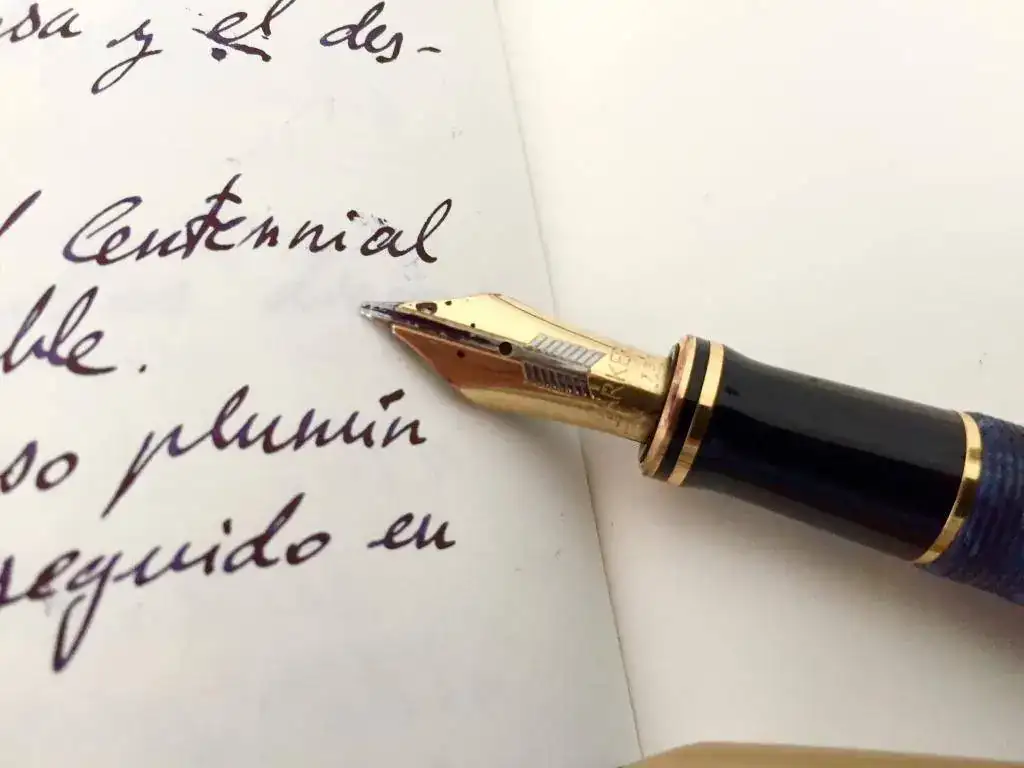 y el des-
Centennial
ble.
so plumín
seguido en
PARKER